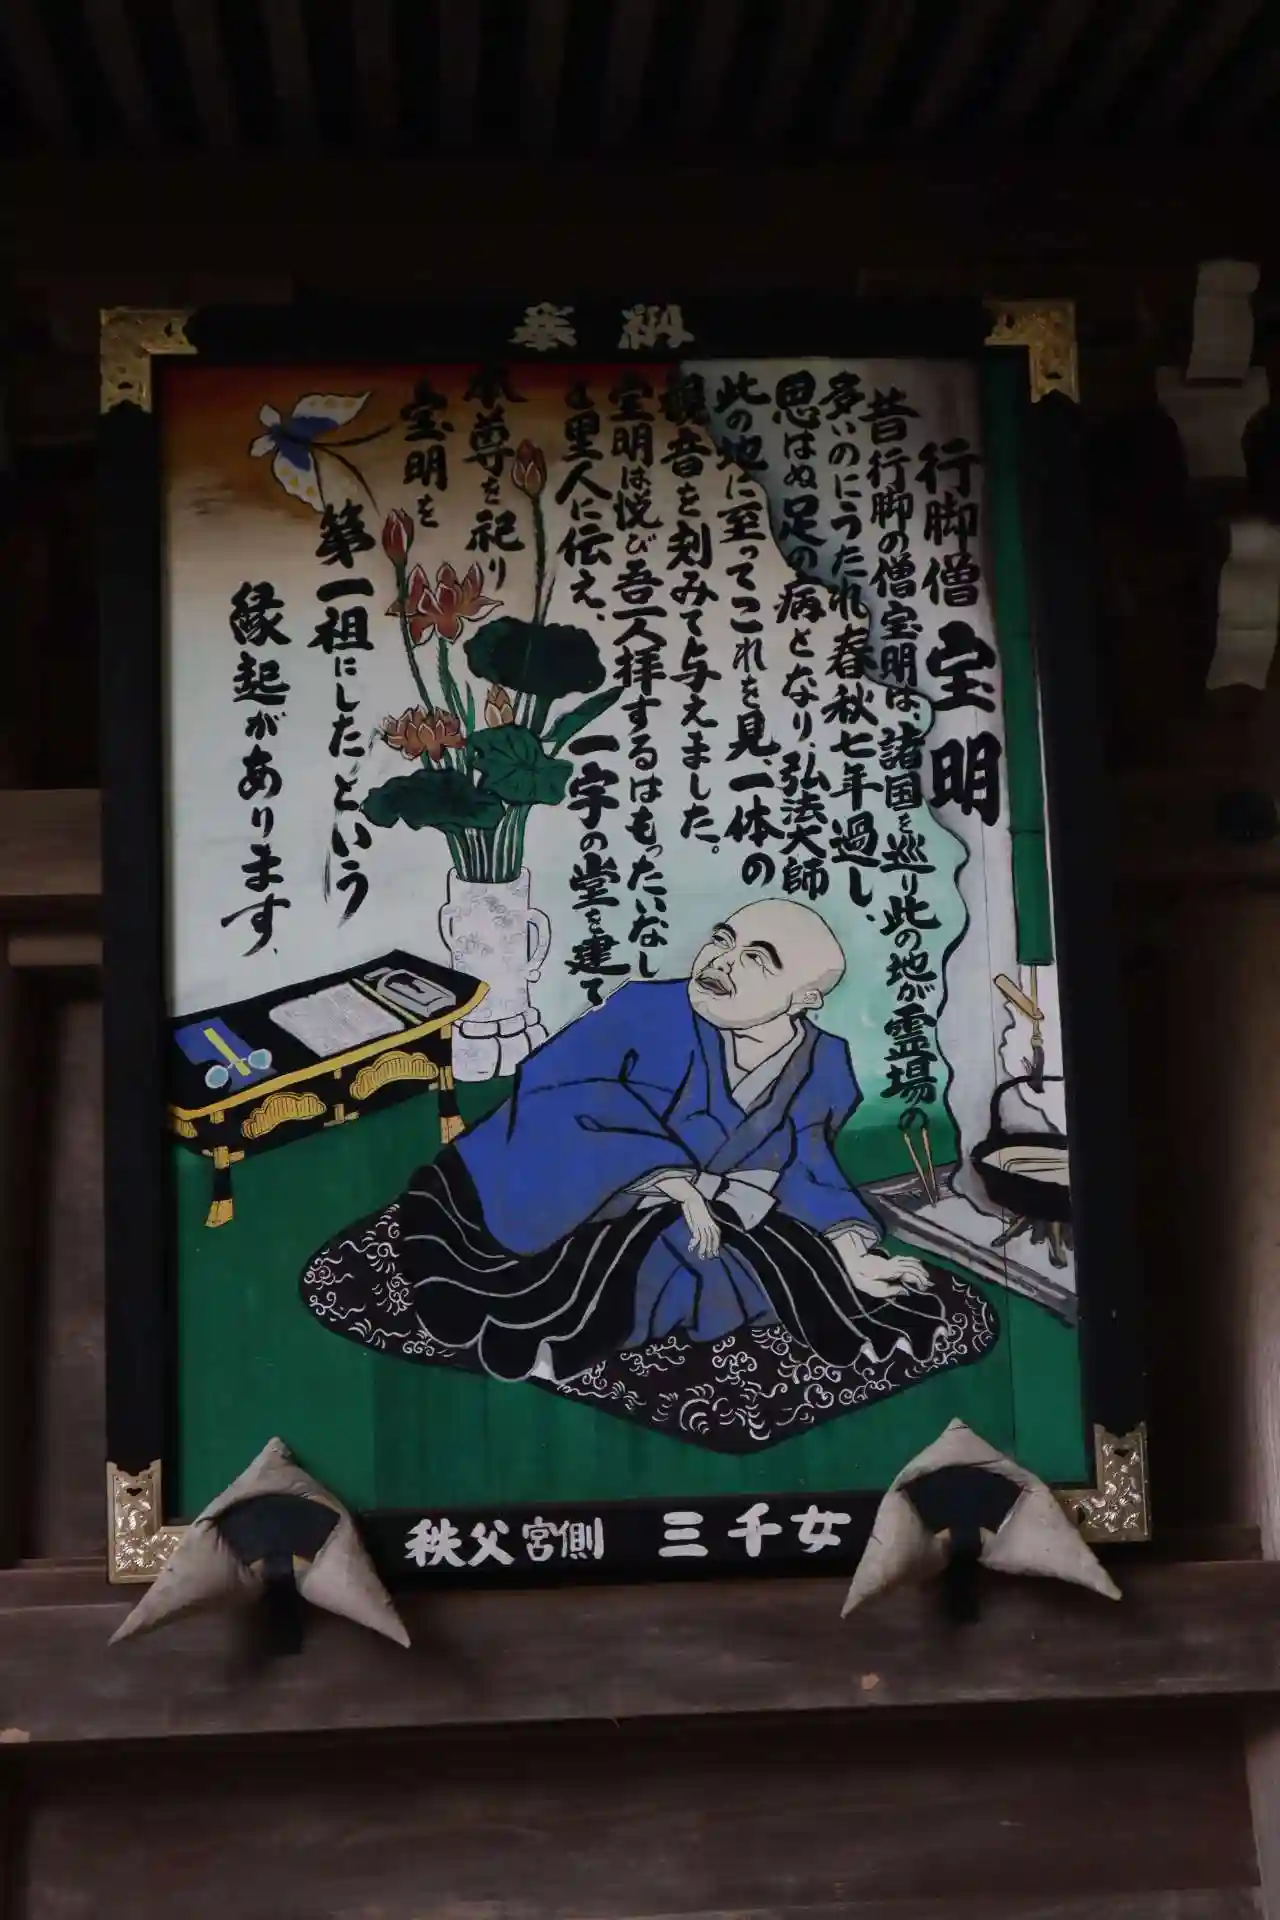 奉納
行脚僧 宝明
昔行脚の僧宝明は、諸国を巡り此の地が霊場の
多いのにうたれ春秋七年過し、
思はぬ足の病となり、弘法大師
此の地に至ってこれを見、一体の
観音を刻みて与えました。
宝明は悦び吾一人拝するはもったいなし
と里人に伝え、一宇の堂を建て
本尊を祀り
宝明を
第一祖にした、という
縁起があります、
秩父宮側 三千女